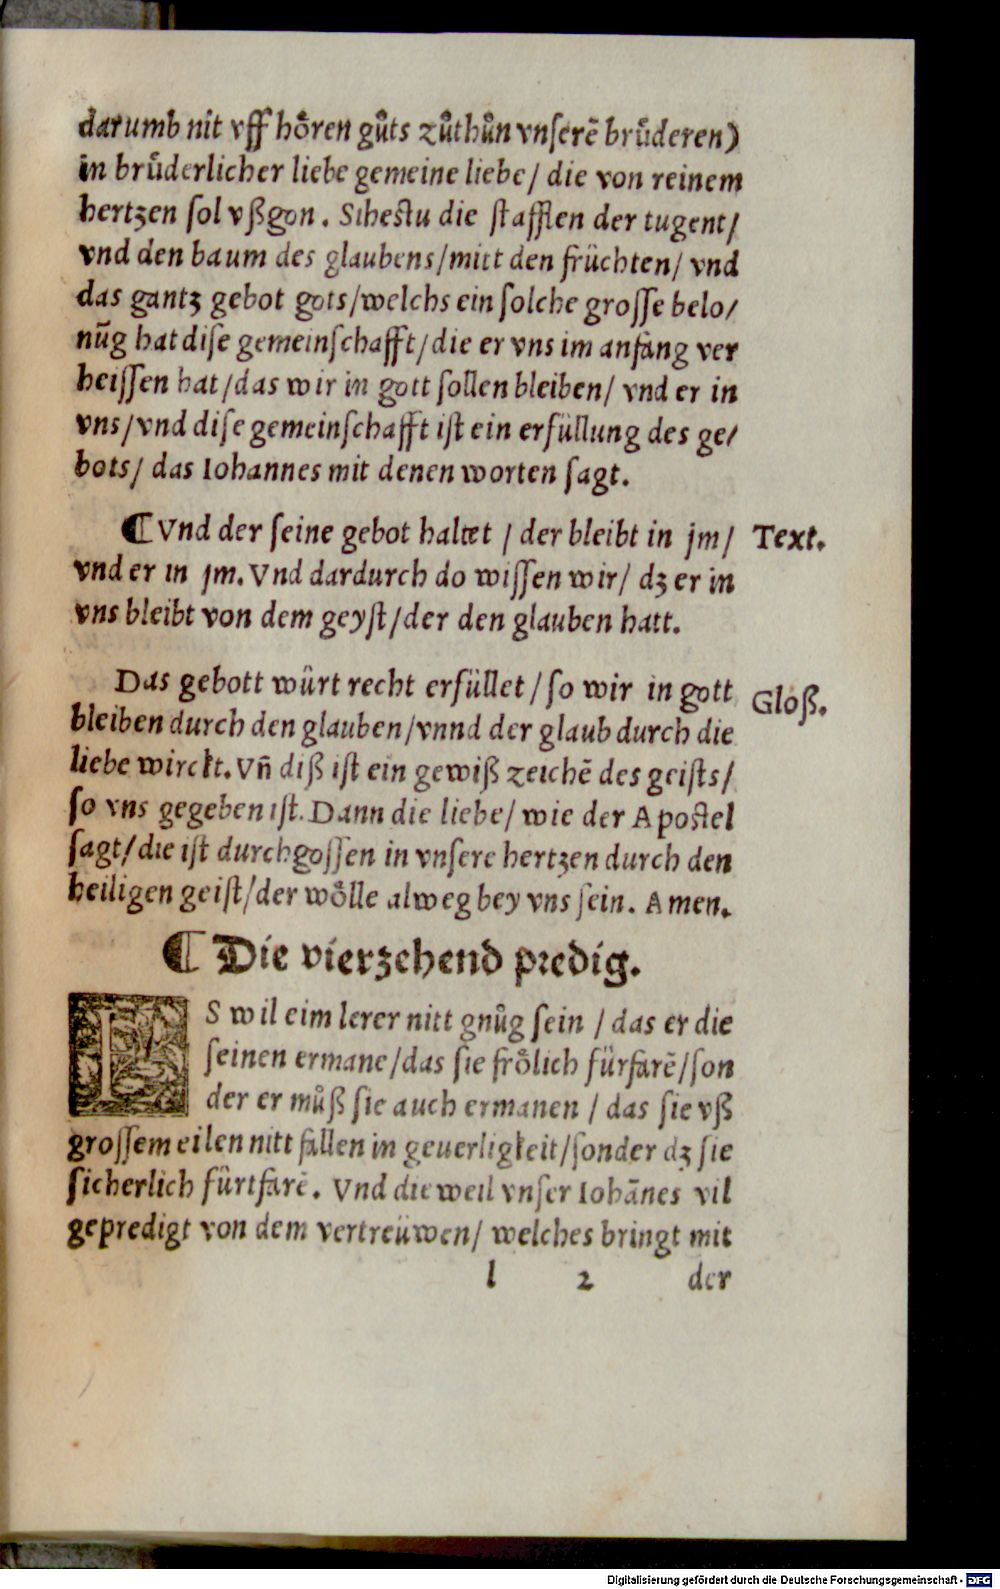 darumb nit vff hoͤren guͦts zuͦthuͦn vnserē bruͤderen)
in bruͤderlicher liebe gemeine liebe/ die von reinem
hertzen sol vßgon. Sihestu die stafflen der tugent/
vnd den baum des glaubens/mitt den früchten/ vnd
das gantz gebot gots/welchs ein solche grosse belo/
nūg hat dise gemeinschafft/die er vns im anfang ver
heissen hat/das wir in gott sollen bleiben/ vnd er in
vns/vnd dise gemeinschafft ist ein erfüllung des ge/
bots/ das Iohannes mit denen worten sagt.
¶Vnd der seine gebot haltet / der bleibt in jm/
Text.
vnd er in jm. Vnd dardurch do wissen wir/ dz er in
vns bleibt von dem geyst/der den glauben hatt.
Das gebott würt recht erfüllet/so wir in gott
Gloß.
bleiben durch den glauben/vnnd der glaub durch die
liebe wirckt. Vñ diß ist ein gewiß zeichē des geists/
so vns gegeben ist. Dann die liebe/ wie der Apostel
sagt/die ist durchgossen in vnsere hertzen durch den
heiligen geist/der woͤlle alweg bey vns sein. Amen.
¶ Die vierzehend predig.
ES wil eim lerer nitt gnuͦg sein / das er die
seinen ermane/das sie froͤlich fürfarē/son
der er muͦß sie auch ermanen / das sie vß
grossem eilen nitt fallen in geuerligkeit/sonder dz sie
sicherlich fürtfarē. Vnd die weil vnser Iohānes vil
gepredigt von dem vertreüwen/ welches bringt mit
l 2 der
Digitalisierung gefördert durch die Deutsche Forschungsgemeinschaft - DFG